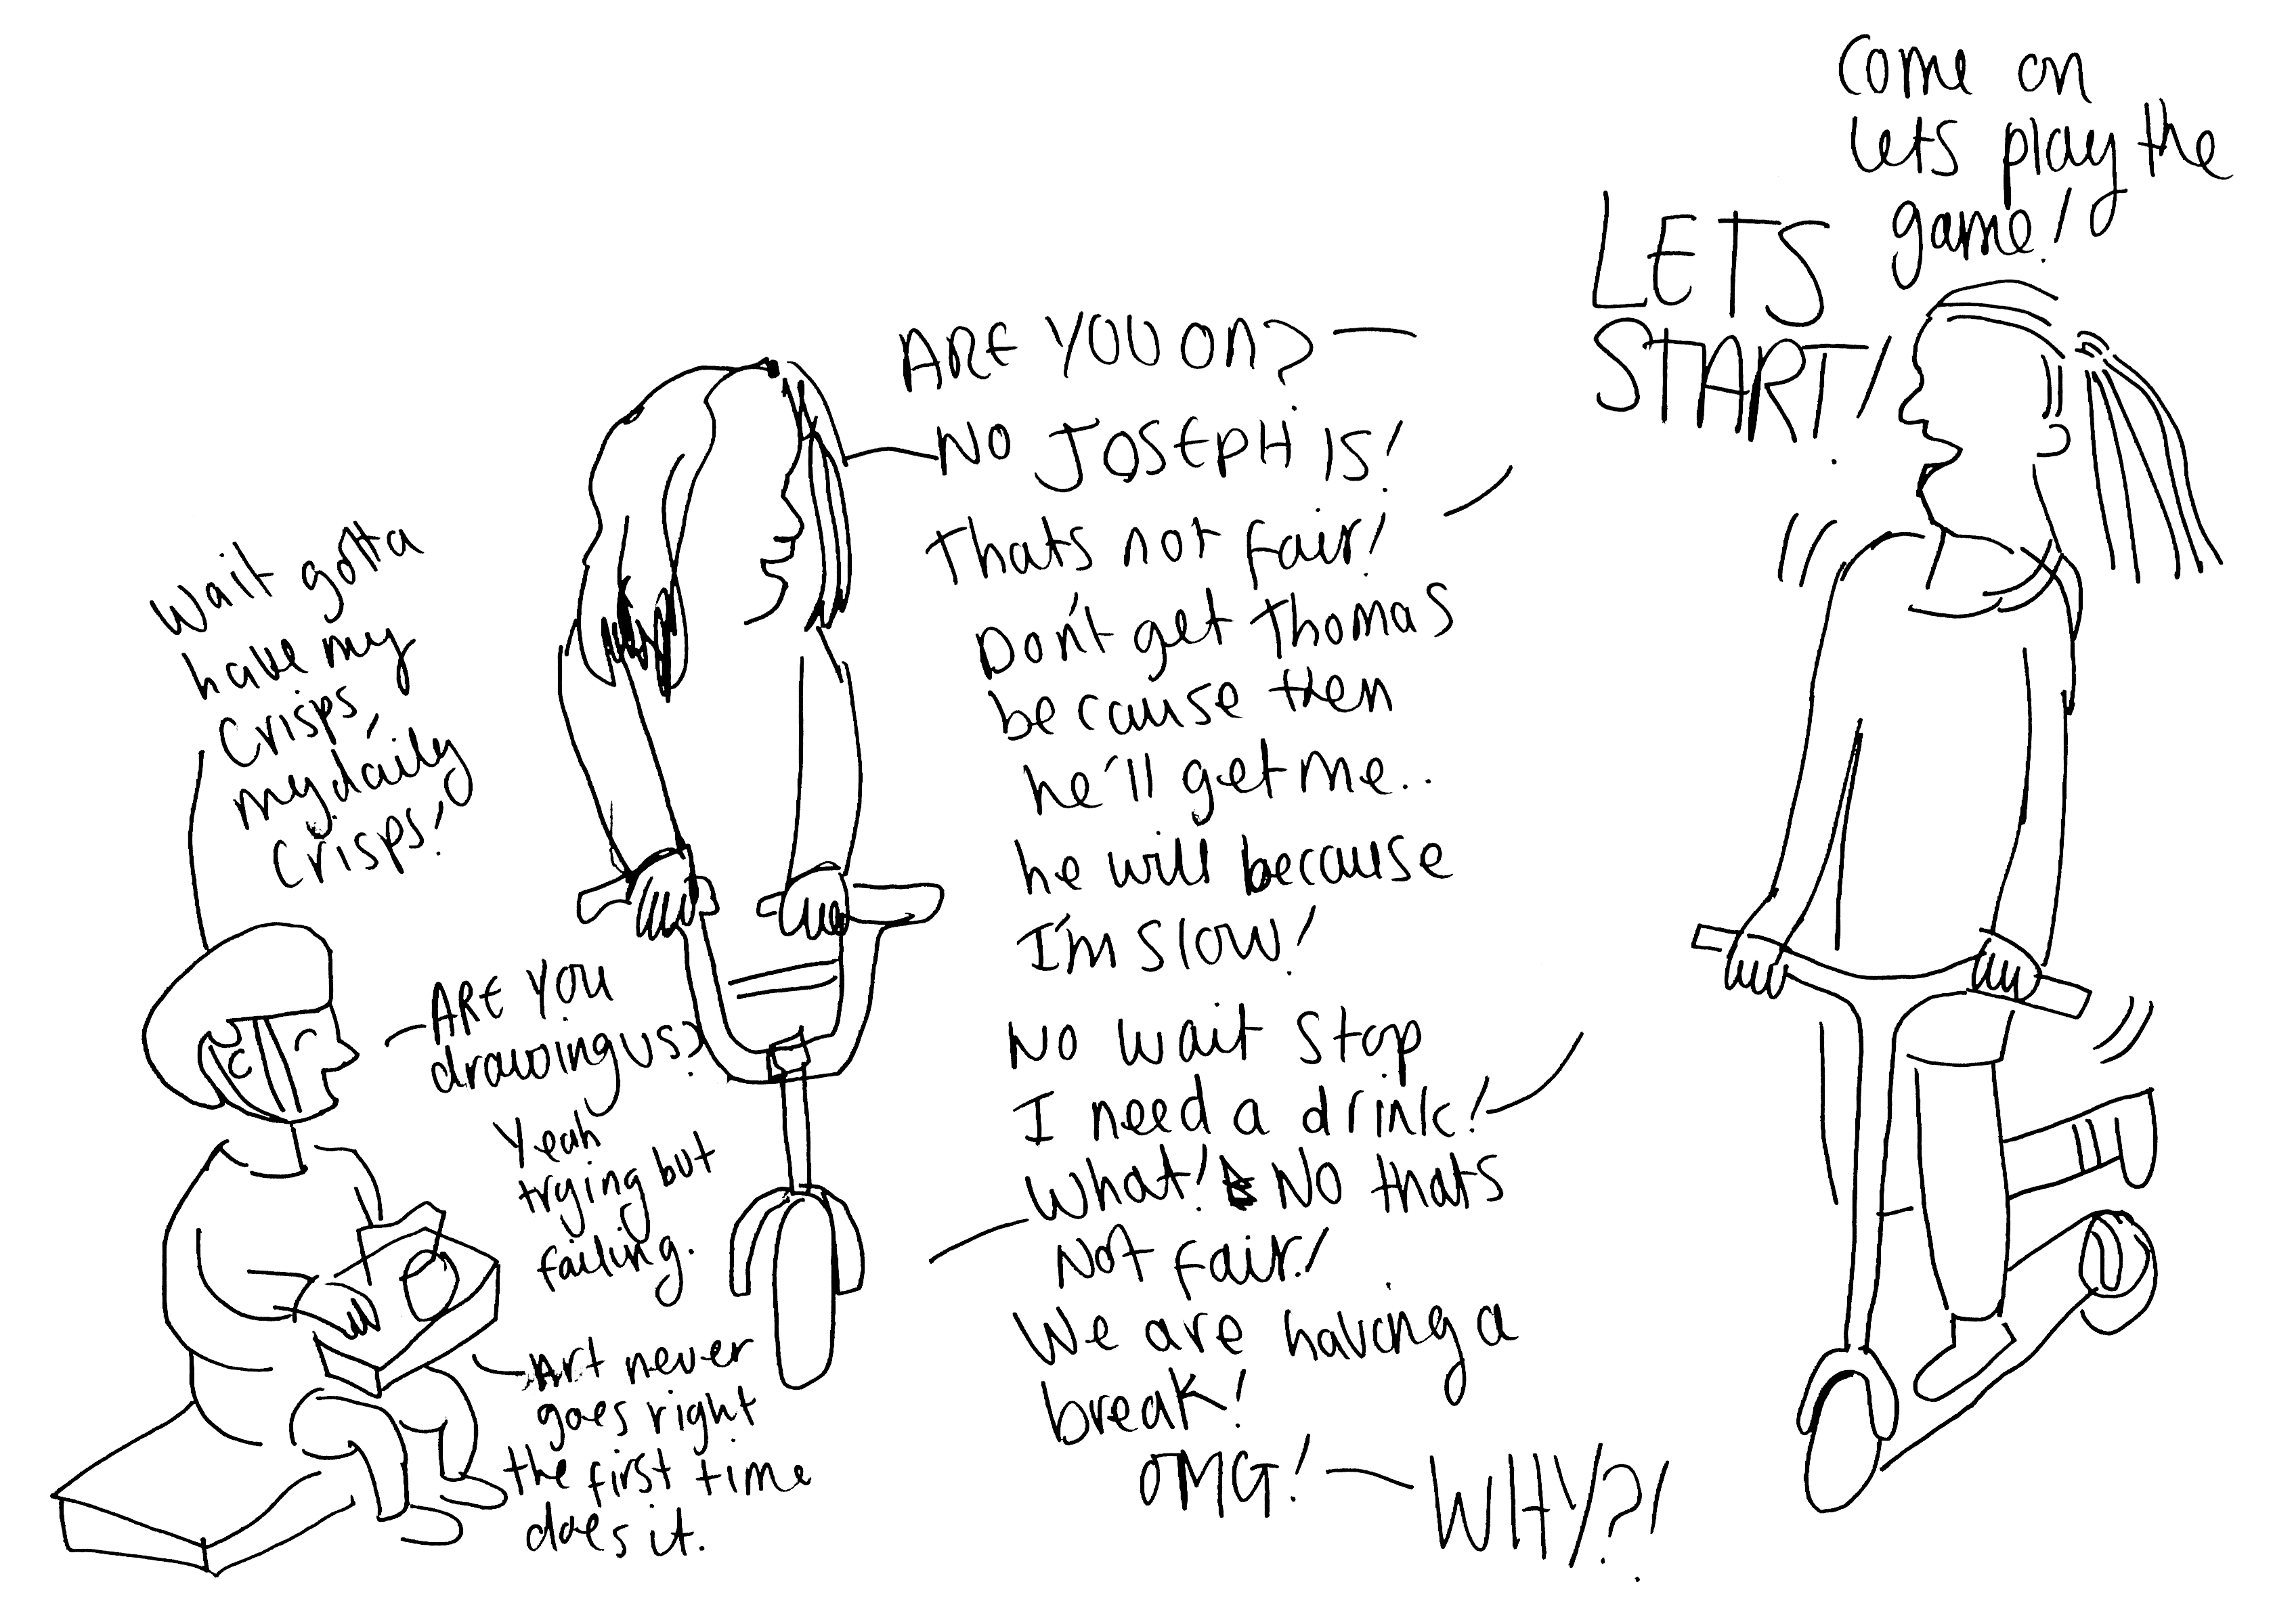 Come on
lets play the
game!
LETS
START!
ARE YOU ON?
NO JOSEPH IS!
Thats not fair!
Don't get Thomas
because then
he'll get me..
he will because
I'm SLOW!
No wait stop
I need a drink!
What! No thats
Not fair!
We are having a
break!
OMG!
WHY?!
Wait gotta
have my
Crisps,
my daily
Crisps!
ARE YOU
drawing us?
Yeah
trying but
failing.
Art never
goes right
the first time
does it.